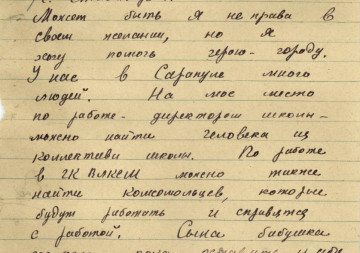 Может быть я не права в
своем желании, но я
хочу помочь герою-городу.
У нас в Сарапуле много
людей. На мое место
по работе - директором школы -
можно найти человека из
коллектива школы. По работе
в ГК ВЛКСМ можно также
найти комсомольцев, которые
будут работать и справятся
с работой. Сына бабушка